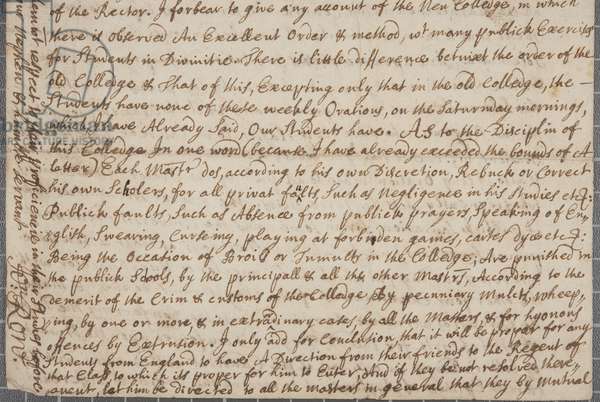 of the Rector. I forbear to give any account of the New Colledge, in which
there is observed An Excellent Order & method, wt many publick Exercises
for Students in Divinitie. There is little difference betwixt the order of the
old Colledge & That of this, Excepting only that in the old Colledge, the
Students have none of these weekly Orations, on the Saturnday mornings,
which, I have Already Said, Our Students have. As to the Disciplin of
this Colledge In one word (becaus I have already exceeded the bounds of A
latter) Each Mastr dos, according to his own Discretion, Rebuck or Correct
his own Scholers, for all privat faults, Such as Negligence in his Studies etc:
Publick faults, Such as Absence from publick prayers, Speaking of En-
glish, Swearing, Curseing, playing at forbidden games, cartes dyce etc:
Being the Occasion of Broils or Tumults in the Colledge, Are punished in
the publick Scools, by the principall & all the other Mastrs, According to the
demerit of the Crim & customs of the Colledge by pecunniary Mulcts, wheep-
ying, by one or more, & in extraordinary cases, by all the Masters & for hyonous
offences by Extrusion. I only add for Conclusion, that it will be proper for any
Students from England to have A Direction from their friends to the Regent of
that Class to which its proper for him to Enter, And if they be not resolved there-
anent, let him be directed to all the masters in general that they by Mutual
respect to his proficience in
Servant